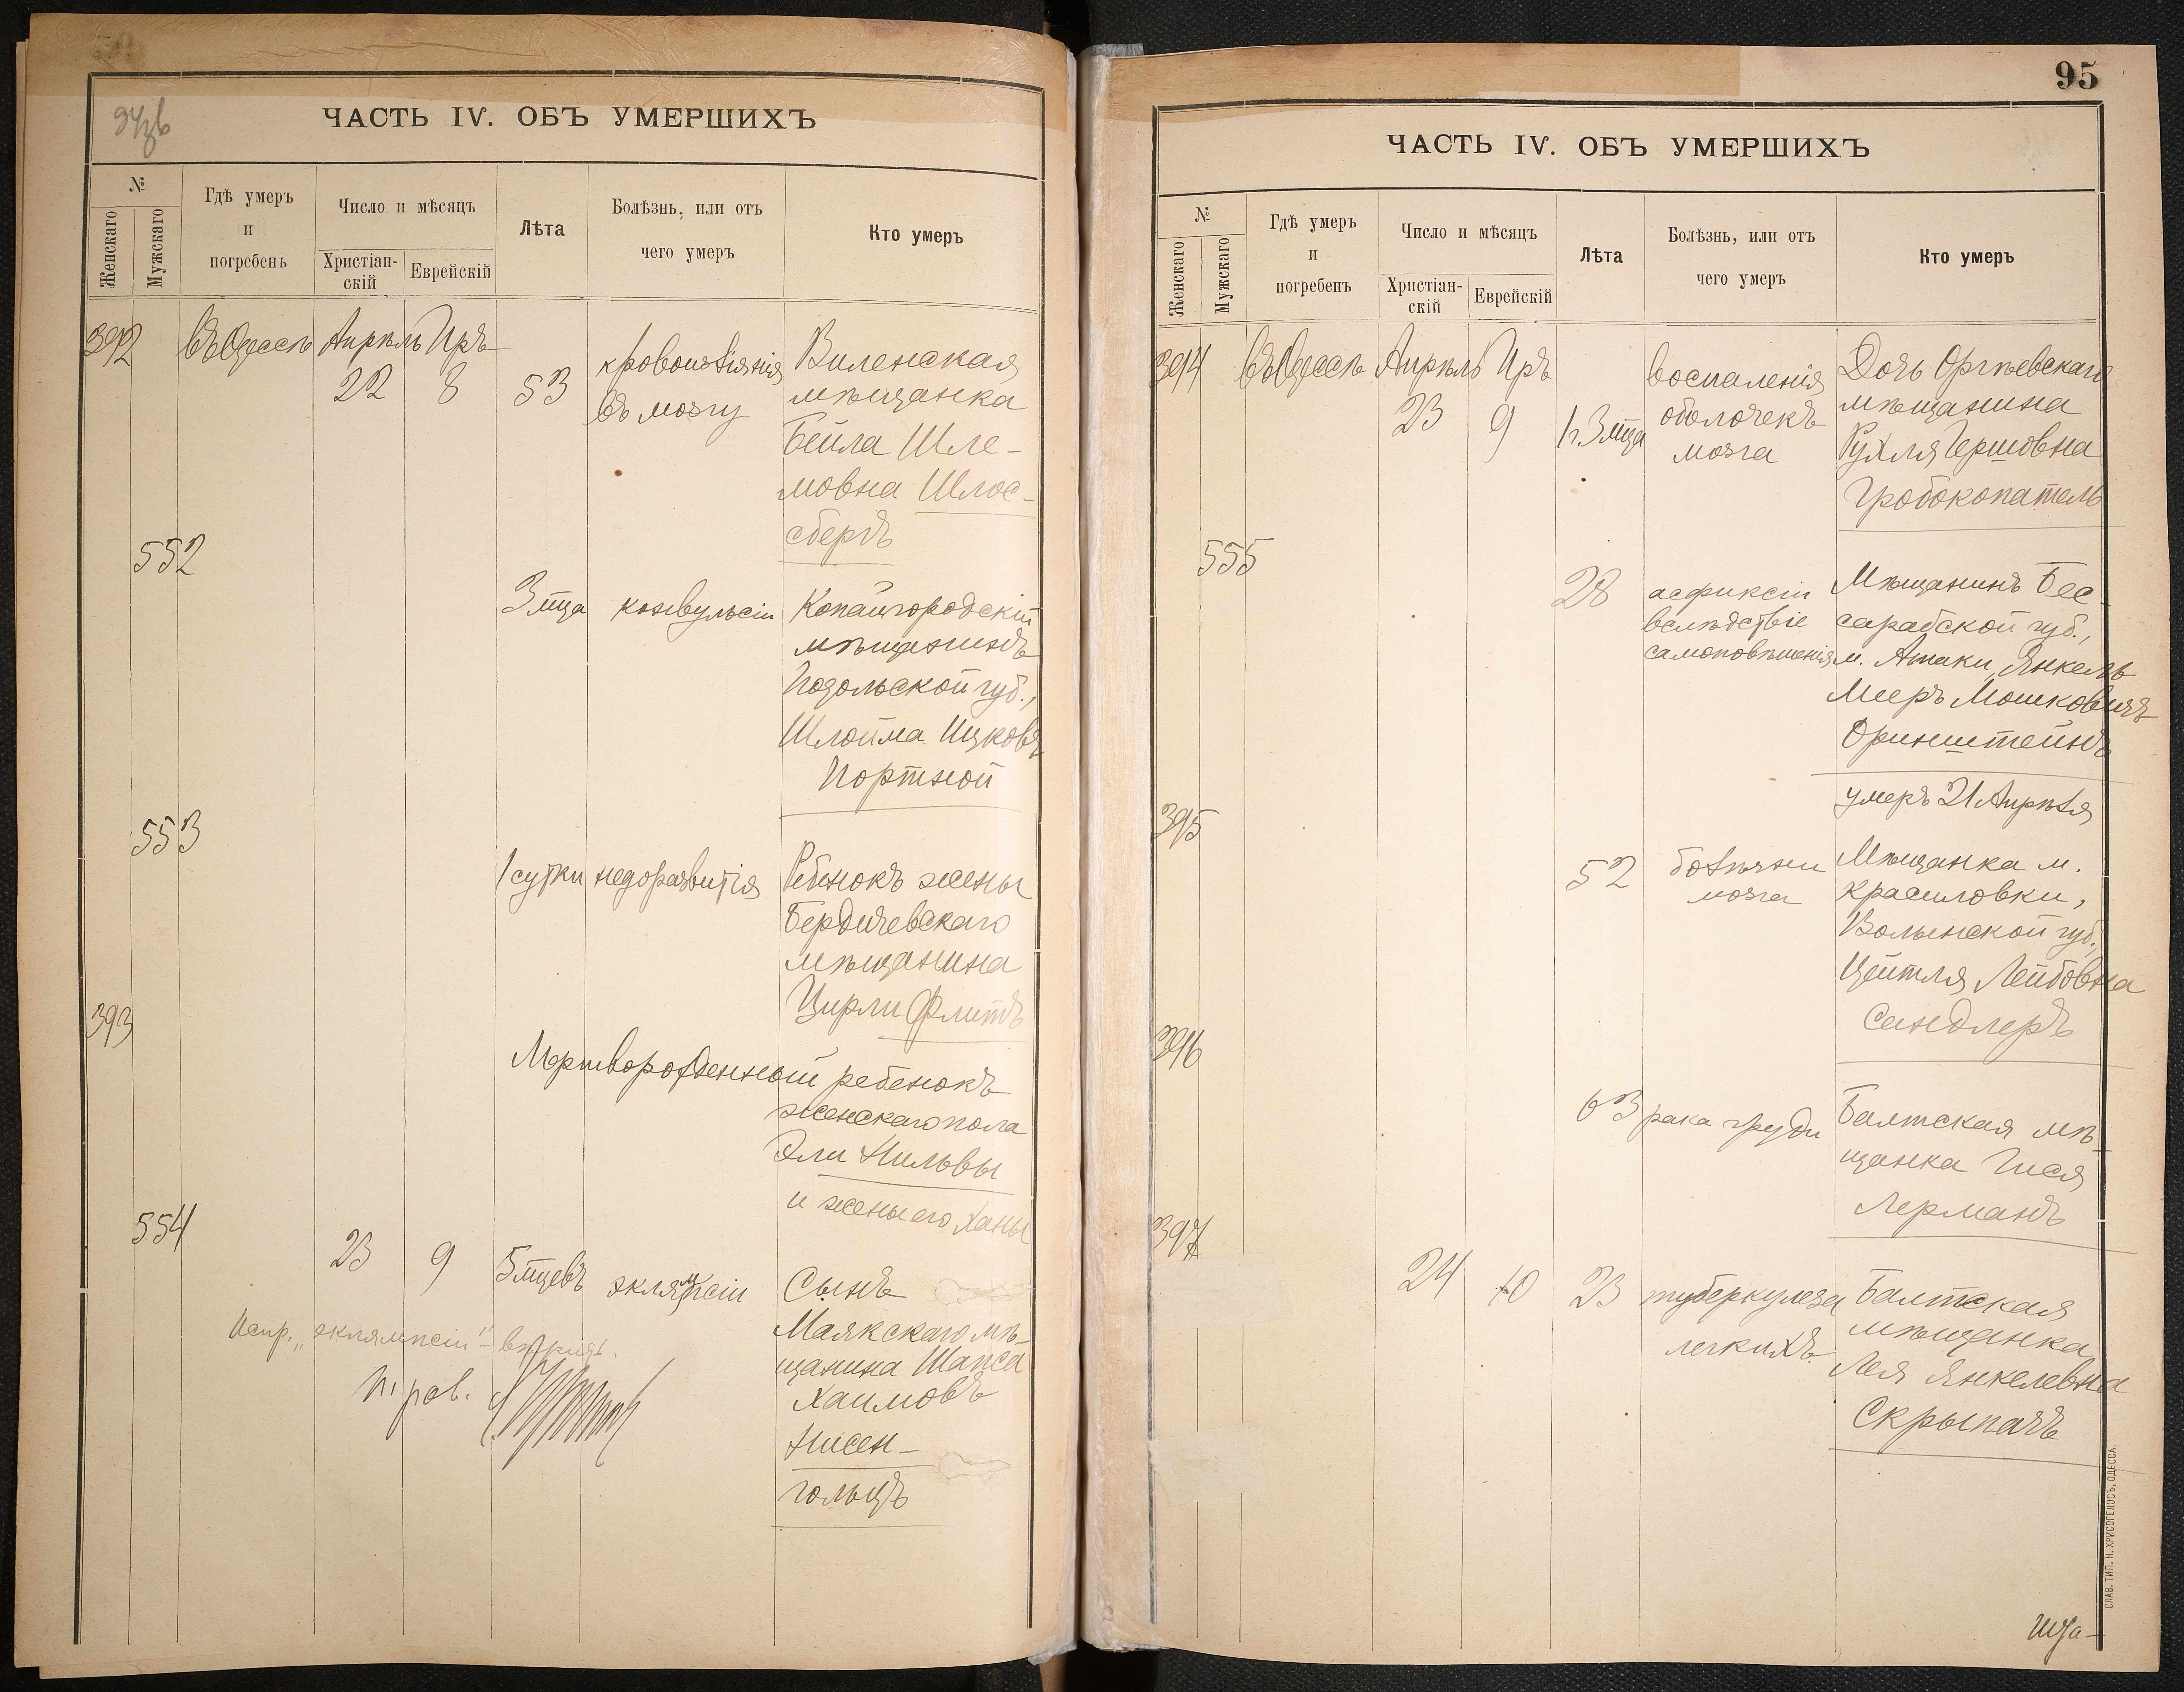 ЧАСТЬ IV. ОБЪ УМЕРШИХЪ
№
Женскаго
Мужскаго
Гдѣ умеръ
и
погребенъ
Число и мѣсяцъ
Христіан-
скій
Еврейскій
Лѣта
Болѣзнь, или отъ
чего умеръ
Кто умеръ
392 Въ Одессѣ Апрѣль Иръ
22 8 53 кровоизліянія
въ мозгу
Виленская
мѣщанка
Бейла Шле-
мовна Шлос-
сбергъ
552
3 мца конвульсіи
Копайгородскій
мѣщанинъ
Подольской губ.,
Шлойма Ицковъ
Портной
553
1 сутки недоразвитія
Ребенокъ жены
Бердичевскаго
мѣщанина
Цирли Флитъ
393
Мертворожденный ребенокъ
женскаго пола
Эли Нильвы
и жены его Ханы
554
23 9 5 мцевъ эклямпсіи
Сынъ
Маякскаго мѣ-
щанина Шапса
Хаимовъ
Нисен-
гольцъ
Испр. „эклямпсіи" - вѣрить.
95
ЧАСТЬ IV. ОБЪ УМЕРШИХЪ
№
Женскаго
Мужскаго
Гдѣ умеръ
и
погребенъ
Число и мѣсяцъ
Христіан-
скій
Еврейскій
Лѣта
Болѣзнь, или отъ
чего умеръ
Кто умеръ
394 Въ Одессѣ Апрѣль Иръ
23 9 1 г. 3 мца
воспаленія
оболочекъ
мозга
Дочь Оргѣевскаго
мѣщанина
Рухля Гершовна
Гробокопатель
555
28 асфиксіи
вслѣдствіе
самоповѣшенія
Мѣщанинъ Бес-
сарабской губ.,
м. Атаки, Янкель
Мееръ Мошковичъ
Оринштейнъ
умеръ 21 Апрѣля
395
52 болѣзни
мозга
Мѣщанка м.
Красиловки,
Волынской губ.,
Цейтля Лейбовна
Сандлеръ
396
63 рака груди
Балтская мѣ-
щанка Гися
Лерманъ
397
24 10 23 туберкулеза
легкихъ
Балтская
мѣщанка
Лея Янкелевна
Скрыпачъ
СЛАВ. ТИП. Н. ХРИСОГЕЛОСЪ, ОДЕССА.